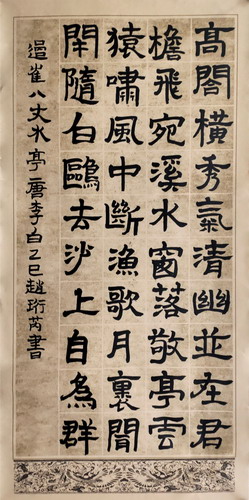 高閣橫秀氣清幽並在君
檐飛宛溪水窗落敬亭雲
猿嘯風中斷漁歌月裏聞
閑隨白鷗去沙上自為群
過崔八丈水亭唐李白乙巳趙珩芮書